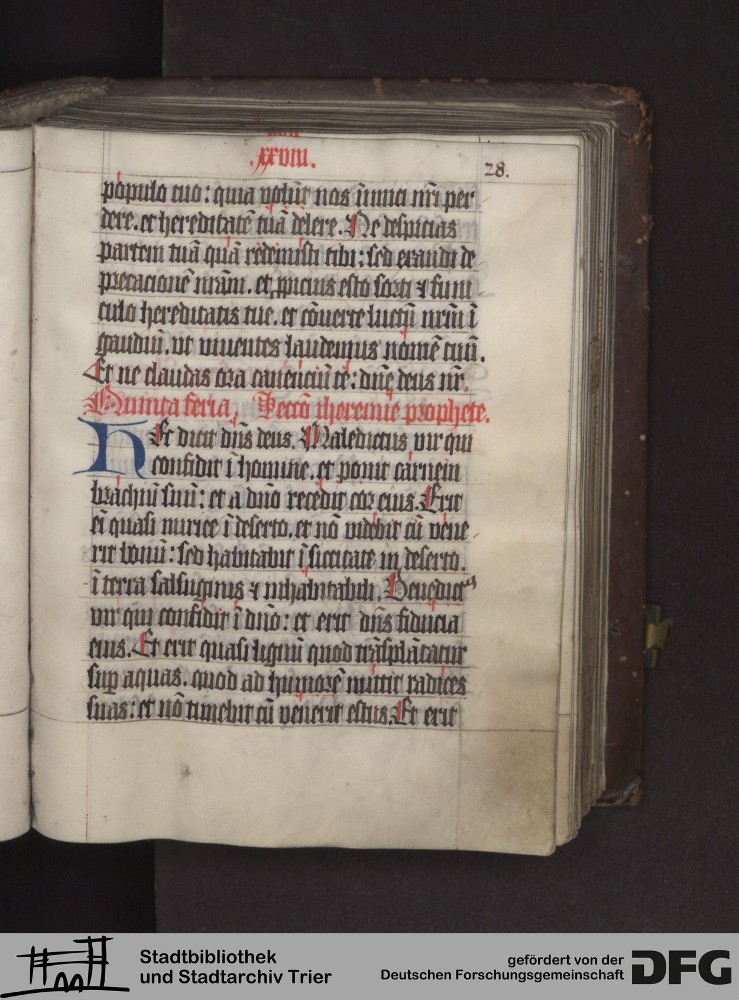 xxviii.
28.
populo tuo: quia volūt nos inimici nr̄i per
dere. et hereditatē tuā delere. Ne despicias
partem tuā quā redemisti tibi: sed exaudi de
precacionē nr̄am. et ꝓpicius esto sorti ⁊ funi
culo hereditatis tue. et cōuerte luctū nr̄m ī
gaudiū. vt viuentes laudemus nomē tuū.
Et ne claudas ora canenciū te: dn̄e deus nr̄.
Quinta feria. Leccō iheremie prophete.
Hec dicit dn̄s deus. Maledictus vir qui
confidit ī homine. et ponit carnem
brachiū suū: et a dn̄o recedit cor eius. Erit
eī quasi mirice ī deserto. et nō videbit cū vene
rit bonū: sed habitabit ī siccitate in deserto.
ī terra salsuginis ⁊ inhabitabili. Benedictꝰ
vir qui confidit ī dn̄o: et erit dn̄s fiducia
eius. Et erit quasi lignū quod trāsplātatur
suꝑ aquas. quod ad humorē mittit radices
suas: et nō timebit cū venerit estus. Et erit
Stadtbibliothek
und Stadtarchiv Trier
gefördert von der
Deutschen Forschungsgemeinschaft
DFG